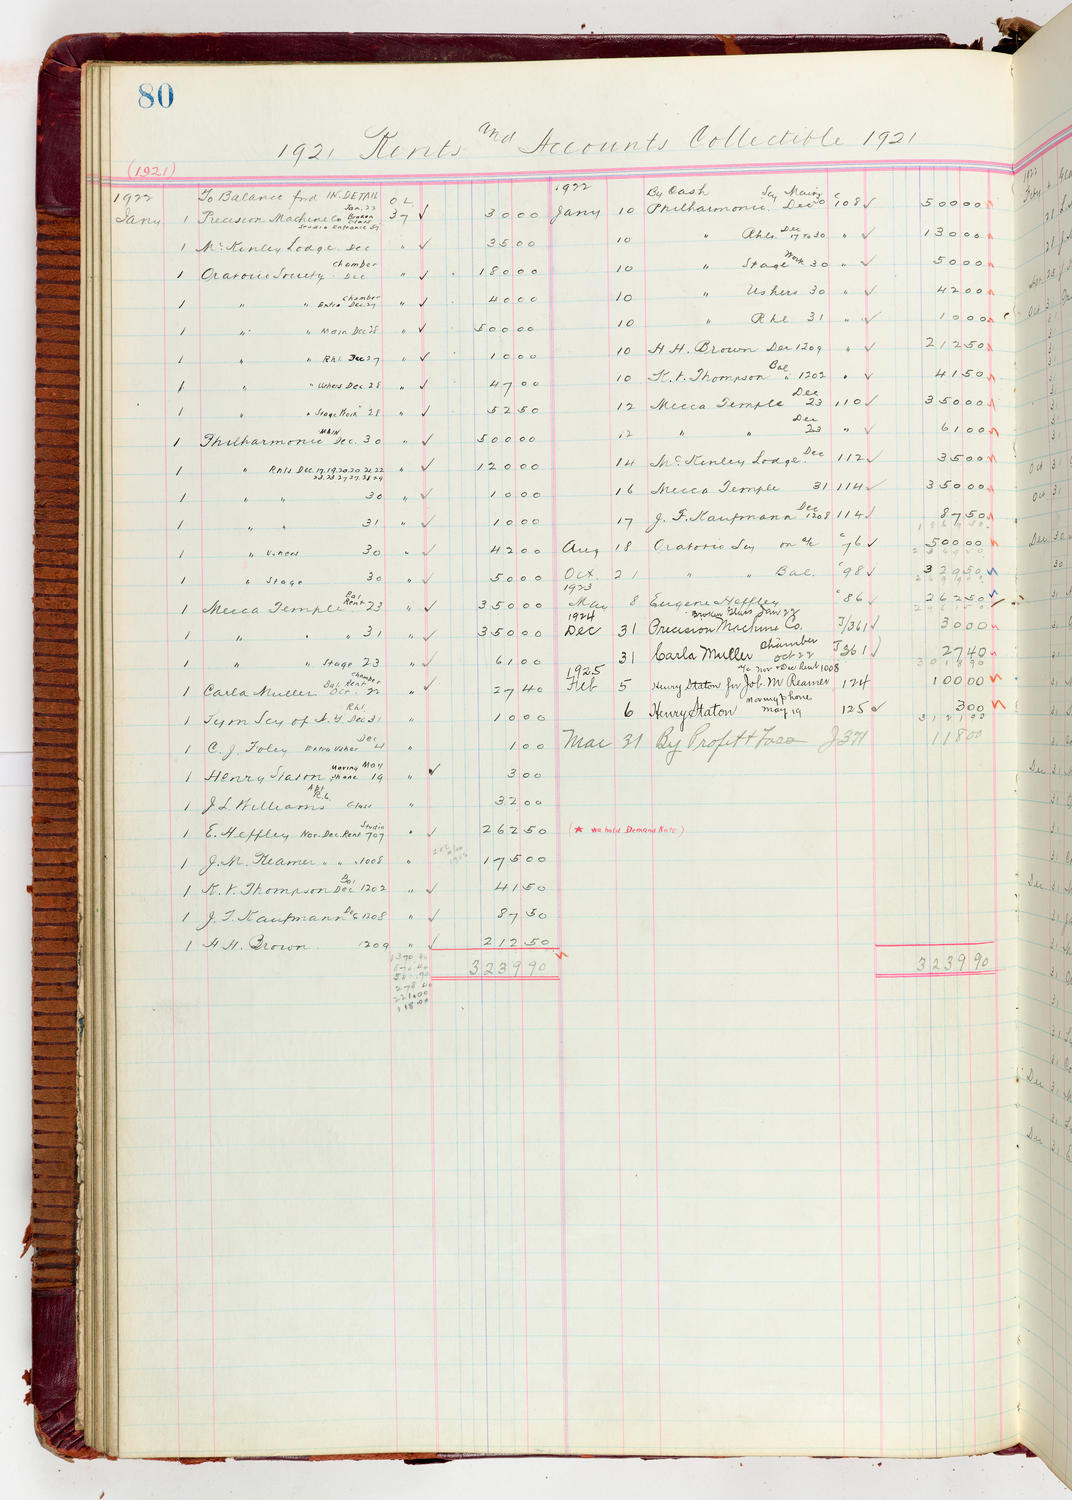 80
1921 Rents and Accounts Collectible 1921
(1921)
1922 To Balance fwd IN DETAIL O L
Jany 1 Precision Machine Co Jan. 22 Broken Glass Studio Entrance 57 37 ✓ 30 00
1 McKinley Lodge Dec " ✓ 35 00
1 Oratorio Society Chamber Dec " ✓ 180 00
1 " " Chamber Extra Dec 27 " ✓ 40 00
1 " " Main Dec 28 " ✓ 500 00
1 " " Rhl Dec 27 " ✓ 10 00
1 " " Ushers Dec. 28 " ✓ 47 00
1 " " Stage Work 28 " ✓ 52 50
1 Philharmonic MAIN Dec. 30 " ✓ 500 00
1 " Rhls Dec. 17.19.20.20 21.22 23.23 27 27.28 29 " ✓ 120 00
1 " " 30 " ✓ 10 00
1 " " 31 " ✓ 10 00
1 " Ushers 30 " ✓ 42 00
1 " Stage 30 " ✓ 50 00
1 Mecca Temple Bal Rent 23 " ✓ 350 00
1 " " 31 " ✓ 350 00
1 " " Stage 23 " ✓ 61 00
1 Carla Muller Chamber Bal. Rent Oct. 22 " ✓ 27 40
1 Sym Scy of N.Y. Rhl. Dec 31 " 10 00
1 C. J. Foley Extra Usher Dec 21 " 1 00
1 Henry Staton Moving Phone May 19 " ✓ 3 00
1 J L Williams Glass " 32 00
1 E. Heffley Nov. Dec. Rent Studio 707 " ✓ 262 50
1 J. M. Reamer " " 1008 " 175 00
1 K. V. Thompson Bal Dec 1202 " ✓ 41 50
1 J. F. Kaufmann Dec 1208 " ✓ 87 50
1 H H. Brown 1209 " ✓ 212 50
3239 90
278 40
221 00
118 00
1922 By Cash
Jany 10 Philharmonic Scy Main Dec 30 C 108 ✓ 500 00
10 " Rhls. Dec 17 to 30 " ✓ 130 00
10 " Stage Work 30 " ✓ 50 00
10 " Ushers 30 " ✓ 42 00
10 " Rhl 31 " ✓ 10 00
10 H H. Brown Dec 1209 " ✓ 212 50
10 K. V. Thompson Bal " 1202 " ✓ 41 50
12 Mecca Temple Dec 23 110 ✓ 350 00
12 " " Dec 23 " ✓ 61 00
14 McKinley Lodge Dec 112 ✓ 35 00
16 Mecca Temple 31 114 ✓ 350 00
17 J. F. Kaufmann Dec 1208 114 ✓ 87 50
Aug 18 Oratorio Scy on a/c C 76 ✓ 500 00
Oct. 21 " " Bal. C 98 ✓ 329 50
1923
May 8 Eugene Heffley C 86 ✓ 262 50
1924
Dec 31 Precision Machine Co. Broken Glass Jan 22 J/361 ✓ 30 00
31 Carla Muller Chamber Oct 22 J 361 ✓ 27 40
3018 90
1925 a/c Nov + Dec Rent 1008
Feb 5 Henry Staton for Job. M Reamer 124 100 00
6 Henry Staton moving phone May 19 125 ✓ 3 00
3121 90
Mar 31 By Profit & Loss J 371 118 00
(★ we hold Demand Note)
3239 90